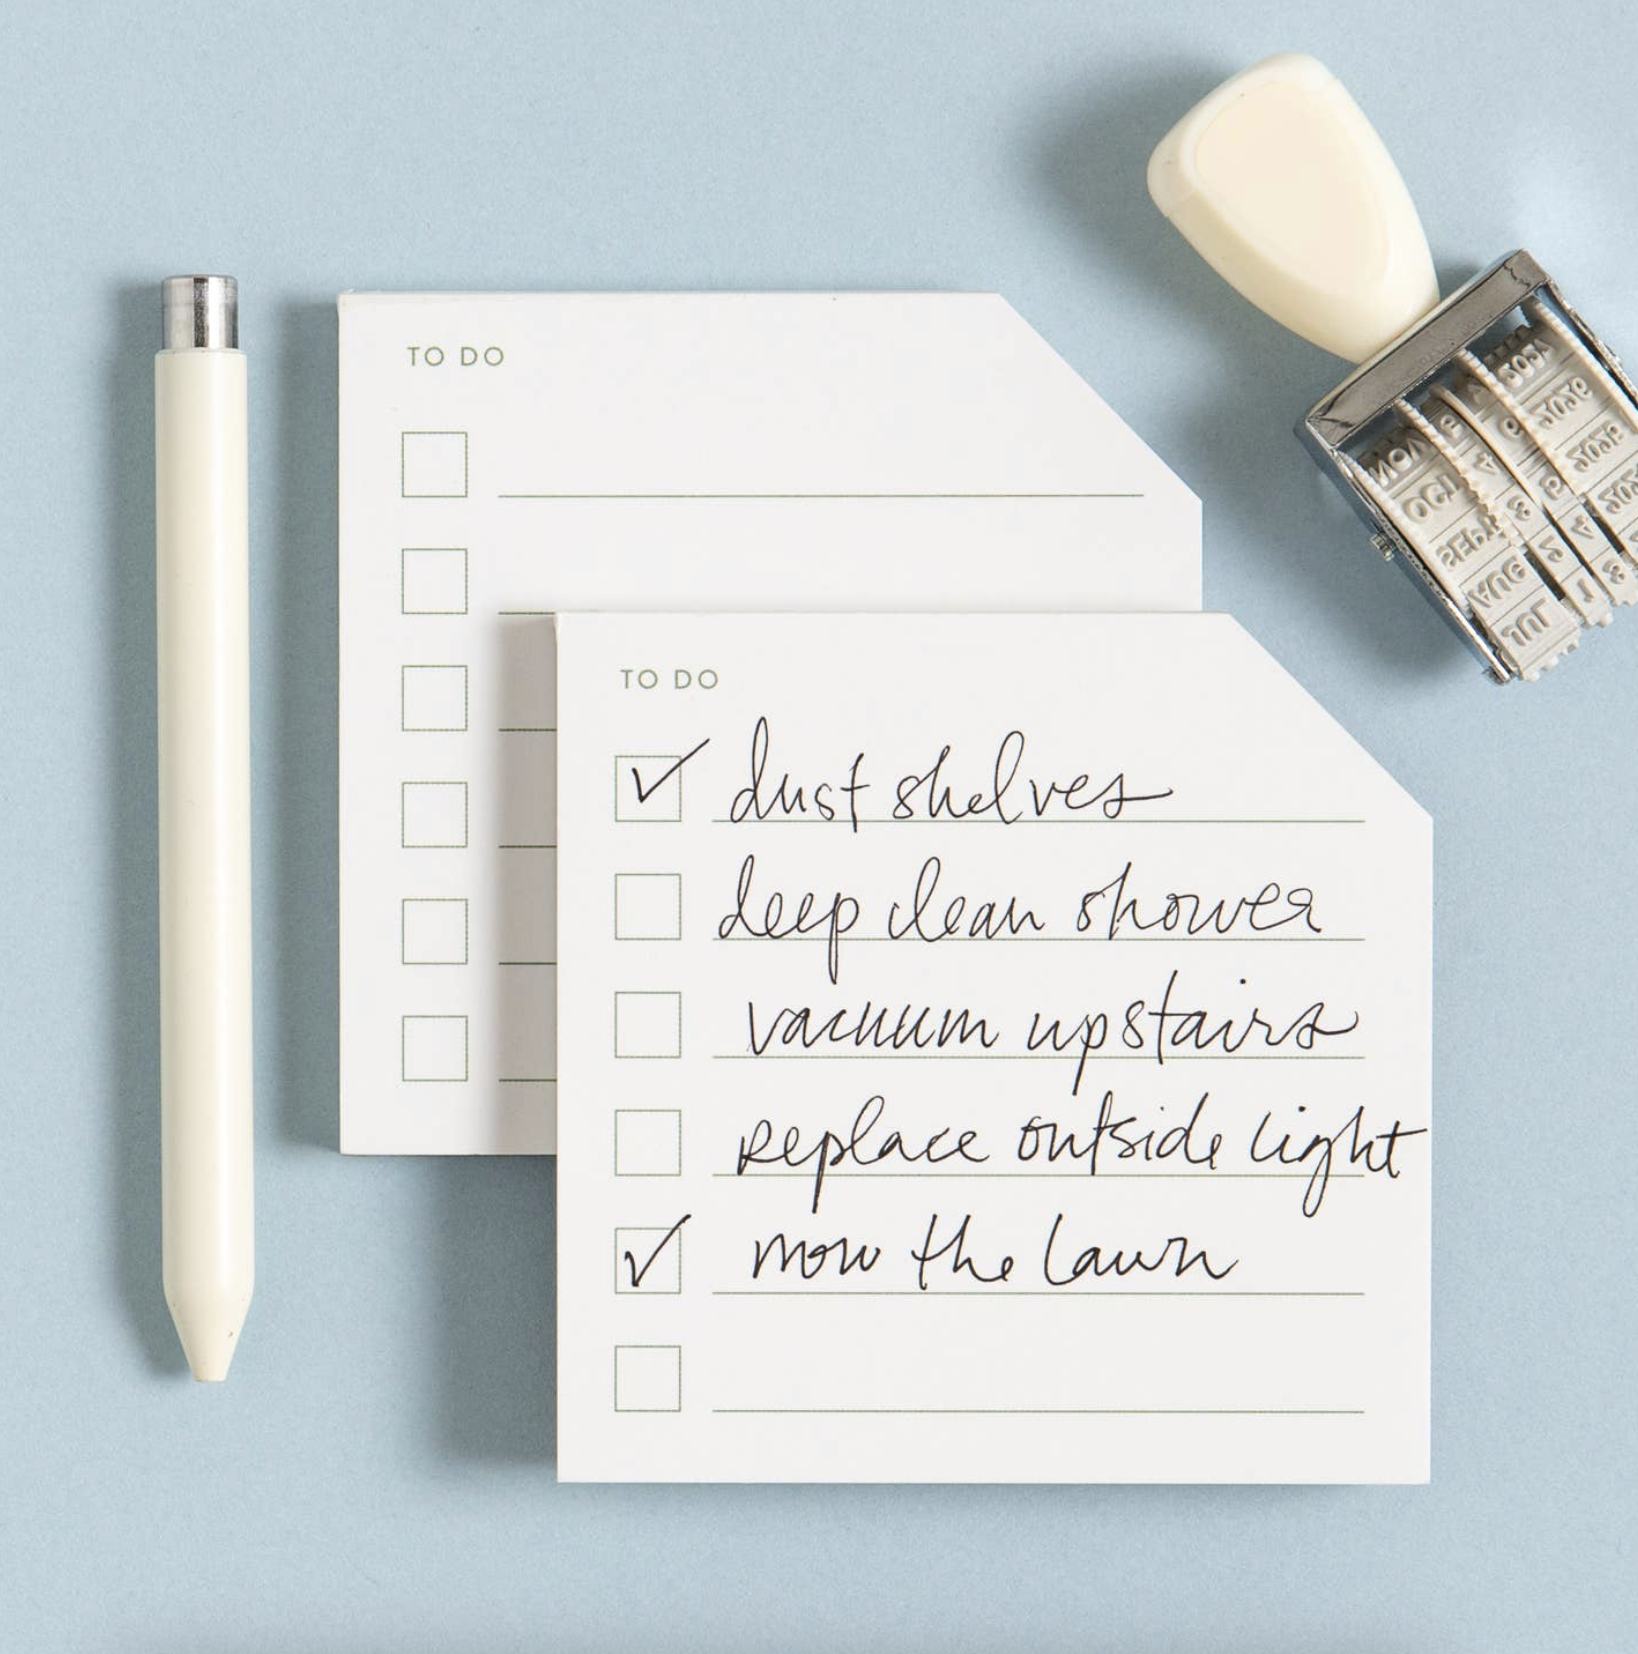 TO DO
TO DO
dust shelves
deep clean shower
vacuum upstairs
replace outside light
mow the lawn
NOV 5 6 2026
OCT 4 5 2025
SEPT 3 4
AUG 2 3
JUL 1